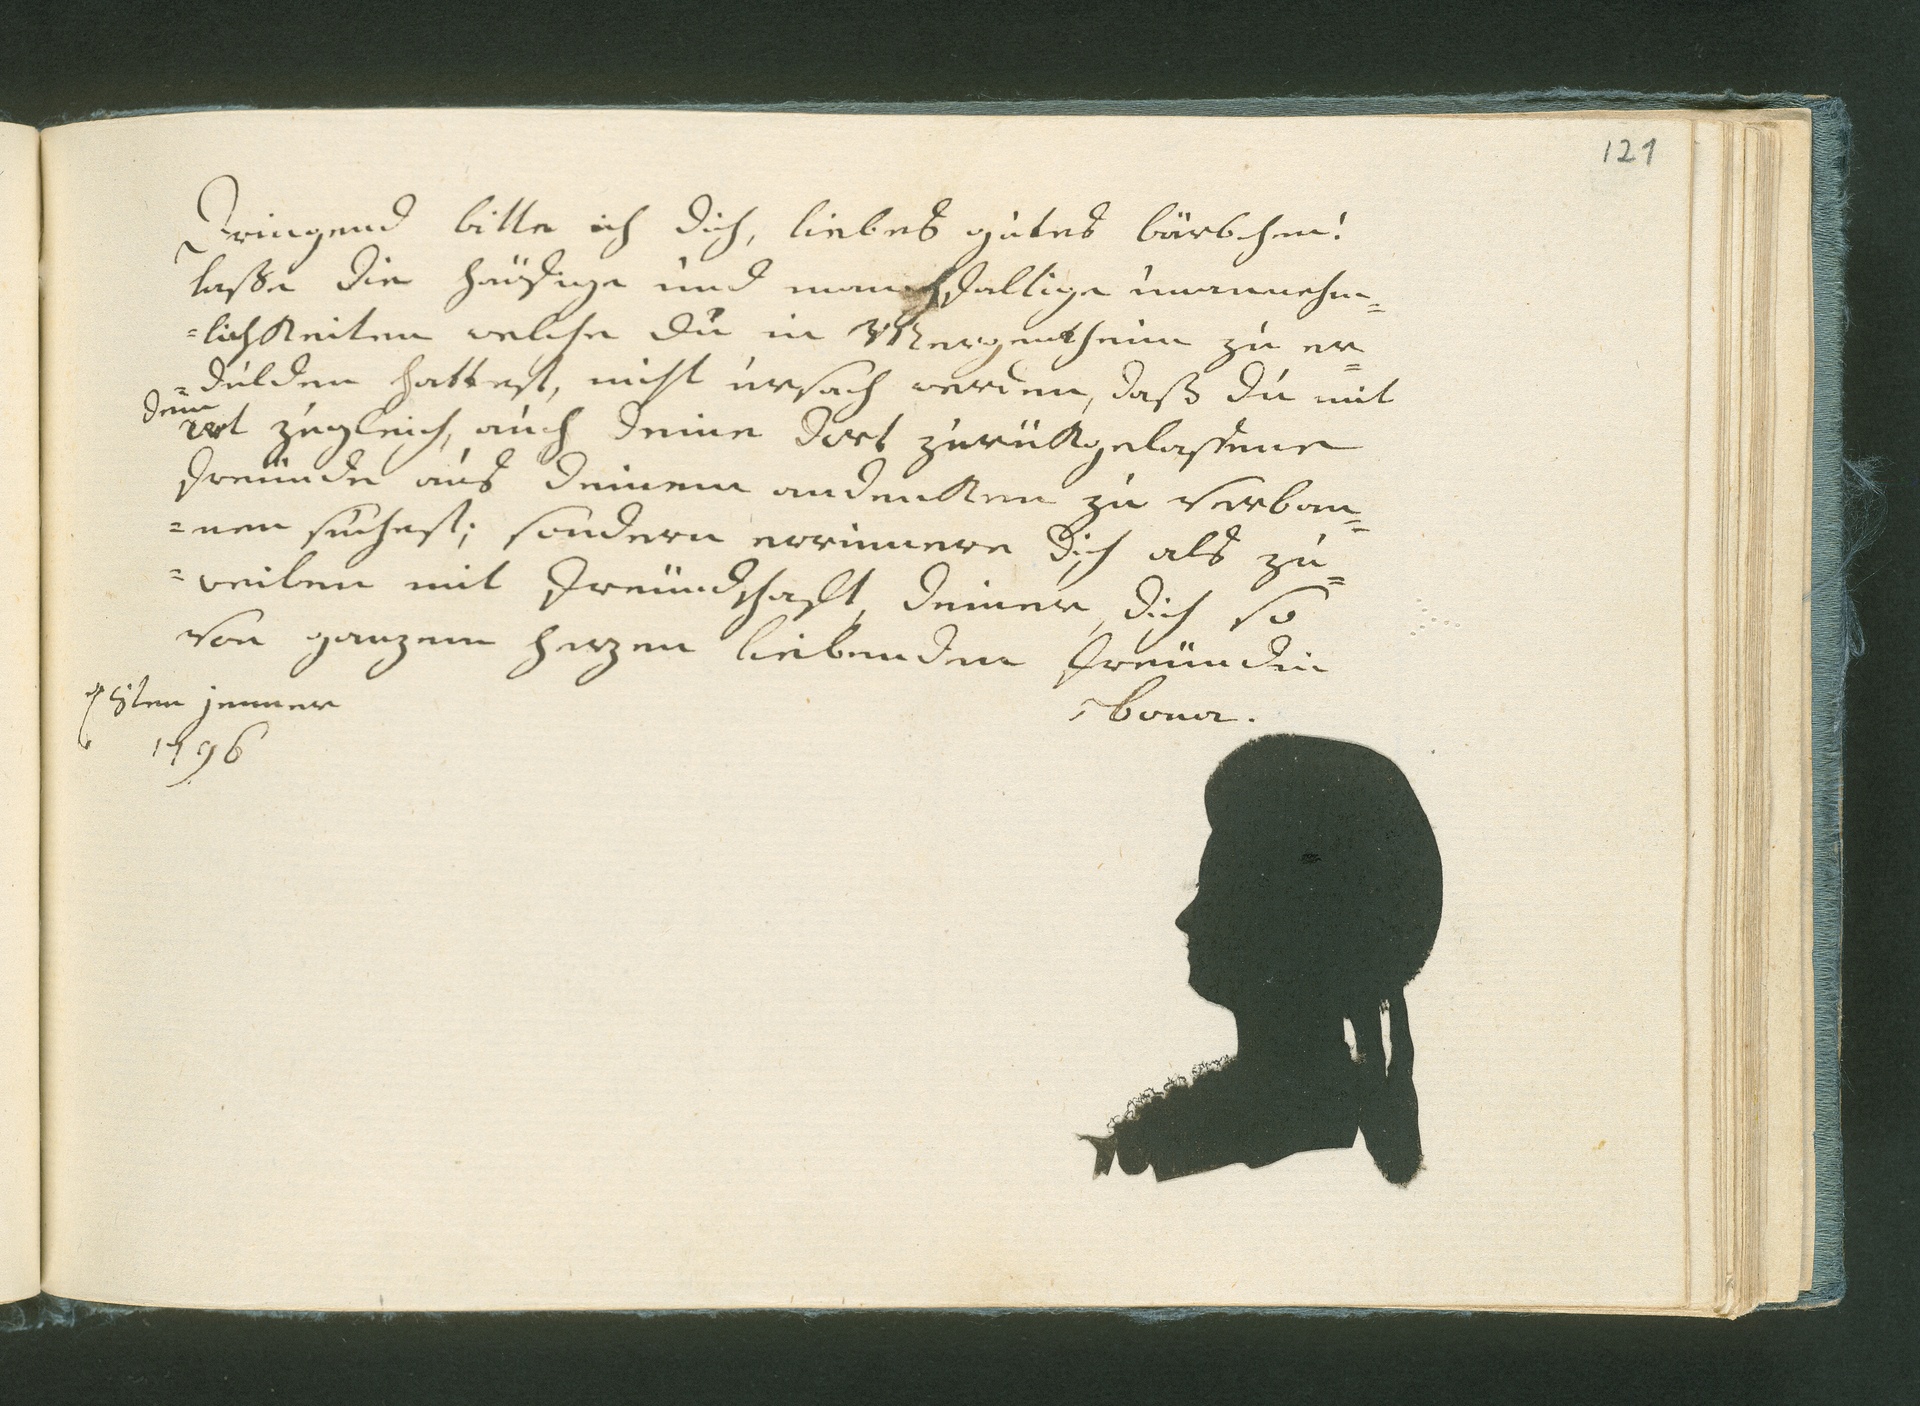 121
Dringend bitte ich dich, liebes gutes bärbchen!
lasse die häufige und manchfaltige unannehm=
=lichkeiten welche du in Mergentheim zu er=
=dulden hattest, nicht ursach werden, daß du mit
dem
ort zugleich, auch deine dort zurükgelassene
freünde aus deinem andenken zu verban=
=nen suchest; sondern errinnere dich als zu=
=weilen mit freündschaft, deiner, dich so
von ganzem herzen liebenden freündin
bona.
jenner
1796